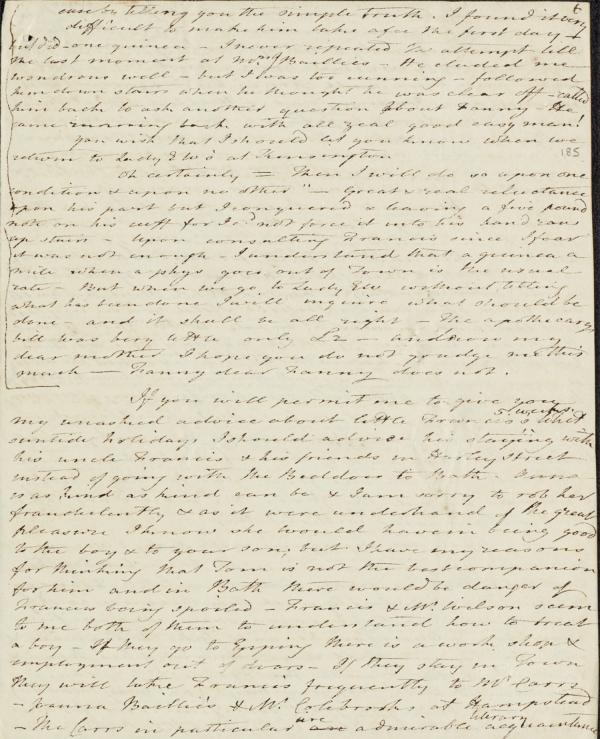 ease by telling you the simple truth. I found it very
difficult to make him take a fee the first day –
he did – one guinea – I never repeated the attempt till
the last moment at Mrs Baillies – He eluded me
wondrous well – but I was too cunning – followed
him down stairs when he thought he was clear off – called
him back to ask another question about Fanny – He
came running back with all zeal good easy man!
You wish that I should let you know when we
return to Lady E W's at Kensington
185
Oh certainly = Then I will do so upon one
condition & upon no other" – Great & real reluctance
upon his part but I conquered & leaving a five pound
note on his cuff for I cd not force it into his hand ran
up stairs – Upon consulting Francis since I fear
it was not enough – I understand that a guinea a
mile when a phys goes out of Town is the usual
rate – But when we go to Lady Ews without telling
what has been done I will inquire what should be
done – and it shall be all right – The apothecarys
bill was very little only £2 – and now my
dear mother I hope you do not grudge me this
much – Fanny dear Fanny does not.
If you will permit me to give you
my unasked advice about little Francis's 5 weeks
suntide holidays I should advise his staying with
his uncle Francis & his friends in Harley Street
instead of going with the Beddoes to Bath. Anna
is as kind as kind can be & I am sorry to rob her
fraudulently & as it were underhand of the great
pleasure I know she would have in being good
to the boy & to your son; but I have my reasons
for thinking that Tom is not the best companion
for him and in Bath there would be danger of
Francis being spoiled – Francis & Mr Wilson seem
to me both of them to understand how to treat
a boy – If they go to Epping there is a work shop &
employment out of doors – If they stay in Town
they will take Francis frequently to Mr Carrs
– Joanna Baillies & Mr Colebrooks at Hampstead
– The Carrs in particular are an admirable literary acquaintance